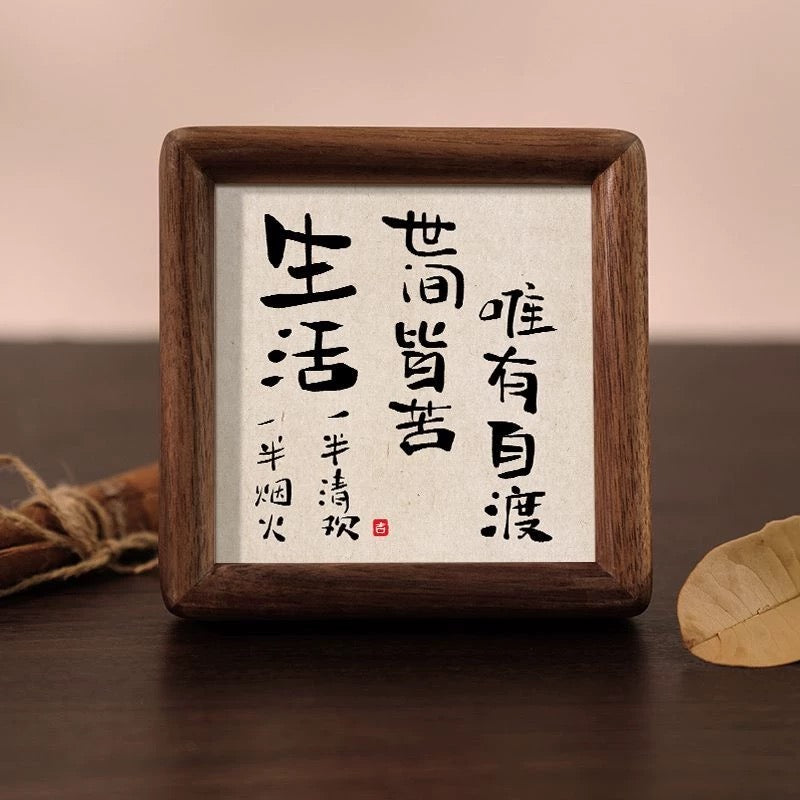 唯有自渡
世间皆苦
生活
一半清欢
一半烟火
吉